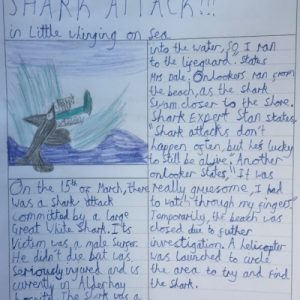 SHARK ATTACK!!!
in Little Whinging on Sea
On the 15th of March, there
was a Shark Attack
committed by a large
Great White Shark. Its
Victim was a male surfer.
He didn't die but was
Seriously injured and is
currently in Alderhay
The Shark was a
into the water, So I ran
to the lifeguard." States
Mrs Dale. Onlookers ran from
the beach, as the shark
Swam closer to the shore.
Shark Expert Stan states,
"Shark attacks don't
happen often, but he's lucky
to still be alive." Another
onlooker States, "It was
really gruesome, I had
to watch through my fingers."
Temporarily, the beach was
closed due to futher
investigation. A helicopter
was launched to circle
the area to try and find
the Shark.